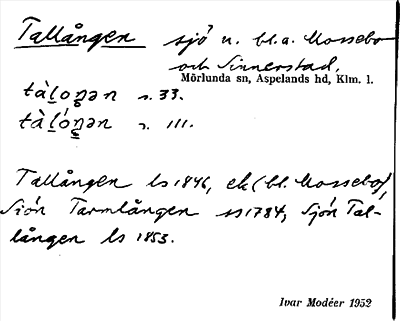 Tallången sjö n. bl.a. Mossebo
och Sinnerstad,
Mörlunda sn, Aspelands hd, Klm. l.
tàḷoŋən s. 33.
tàḷóŋən s. 111.
Tallången ls 1846, ek (bl. Mossebo),
Siön Tarmlången ss 1784, Sjön Tal-
lången ls 1853.
Ivar Modéer 1952